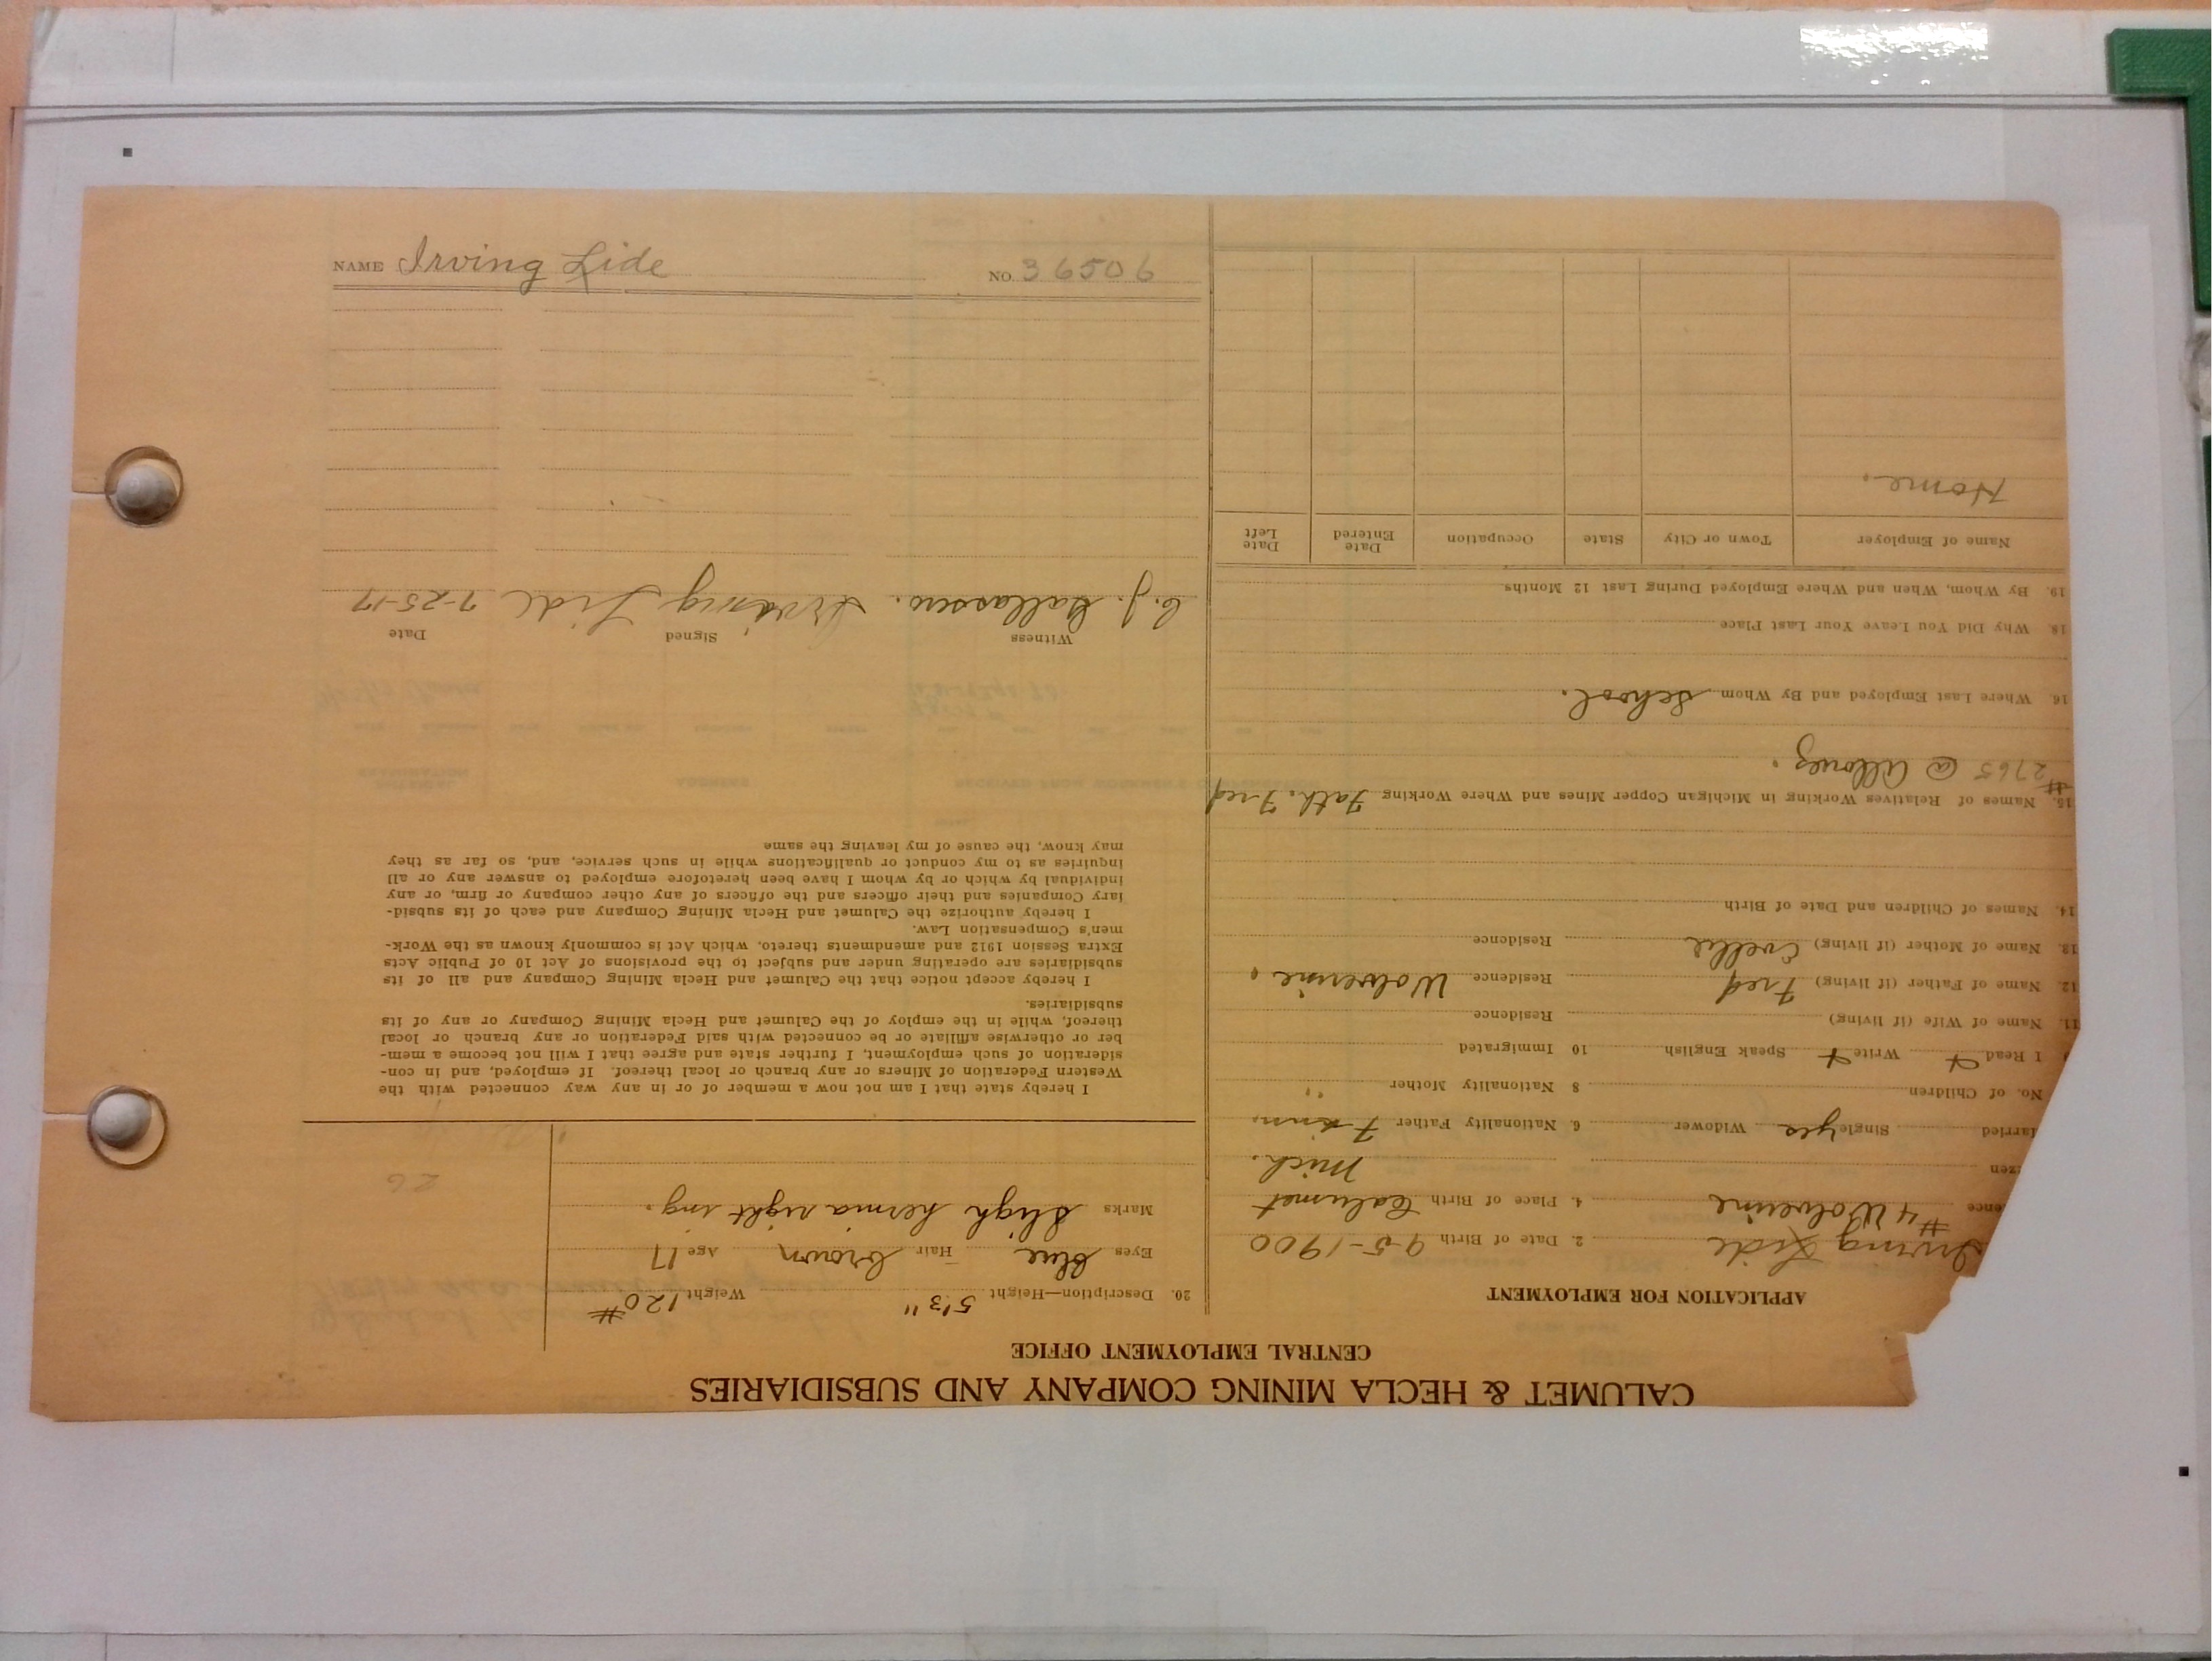 CALUMET & HECLA MINING COMPANY AND SUBSIDIARIES
CENTRAL EMPLOYMENT OFFICE
APPLICATION FOR EMPLOYMENT
Irving Lide 2. Date of Birth 9-5-1900
ence #4 Wolverine 4. Place of Birth Calumet
zen Mich.
larried Single yes Widower 6. Nationality Father Finn.
No. of Children 8 Nationality Mother "
I Read Write Speak English 10 Immigrated
11. Name of Wife (if living) Residence
12. Name of Father (if living) Fred Residence Wolverine.
13. Name of Mother (if living) Residence
14. Names of Children and Date of Birth
15. Names of Relatives Working in Michigan Copper Mines and Where Working Fath. Fred
#2765 @ Allouez.
16. Where Last Employed and By Whom School.
18. Why Did You Leave Your Last Place
19. By Whom, When and Where Employed During Last 12 Months
Name of Employer Town or City State Occupation Date Entered Date Left
Home.
20. Description—Height 5'3" Weight 120#
Eyes blue Hair brown Age 17
Marks Sligh hernia right ing.
26
I hereby state that I am not now a member of or in any way connected with the
Western Federation of Miners or any branch or local thereof. If employed, and in con-
sideration of such employment, I further state and agree that I will not become a mem-
ber or otherwise affiliate or be connected with said Federation or any branch or local
thereof, while in the employ of the Calumet and Hecla Mining Company or any of its
subsidiaries.
I hereby accept notice that the Calumet and Hecla Mining Company and all of its
subsidiaries are operating under and subject to the provisions of Act 10 of Public Acts
Extra Session 1912 and amendments thereto, which Act is commonly known as the Work-
men's Compensation Law.
I hereby authorize the Calumet and Hecla Mining Company and each of its subsid-
iary Companies and their officers and the officers of any other company or firm, or any
individual by which or by whom I have been heretofore employed to answer any or all
inquiries as to my conduct or qualifications while in such service, and, so far as they
may know, the cause of my leaving the same
Witness Signed Date
C.J. Irving Lide 7-25-17
NAME Irving Lide NO. 36506